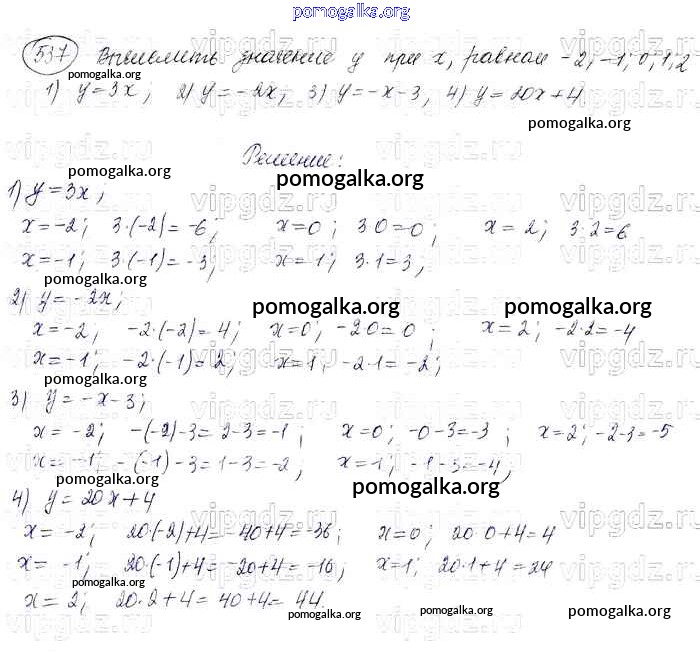 pomogalka.org
537 Вычислить значение y при x, равном -2; -1; 0; 1; 2
pomogalka.org
1) y=3x; 2) y=-2x; 3) y=-x-3, 4) y=20x+4
pomogalka.org
Решение:
pomogalka.org pomogalka.org
1) y=3x;
x=-2; 3·(-2)=-6; x=0; 3·0=0; x=2; 3·2=6
x=-1; 3·(-1)=-3; x=1; 3·1=3;
pomogalka.org
2) y=-2x;
pomogalka.org pomogalka.org
x=-2, -2·(-2)=4; x=0; -2·0=0; x=2; -2·2=-4
x=-1; -2·(-1)=2; x=1, -2·1=-2;
pomogalka.org
3) y=-x-3;
x=-2; -(-2)-3=2-3=-1; x=0; -0-3=-3; x=2; -2-3=-5
x=-1; -(-1)-3=1-3=-2, x=1; -1-3=-4,
pomogalka.org pomogalka.org
4) y=20x+4
x=-2; 20·(-2)+4=-40+4=-36; x=0; 20·0+4=4
x=-1; 20·(-1)+4=-20+4=-16, x=1; 20·1+4=24
pomogalka.org
x=2; 20·2+4=40+4=44.
pomogalka.org pomogalka.org pomogalka.org
vipgdz.ru vipgdz.ru vipgdz.ru